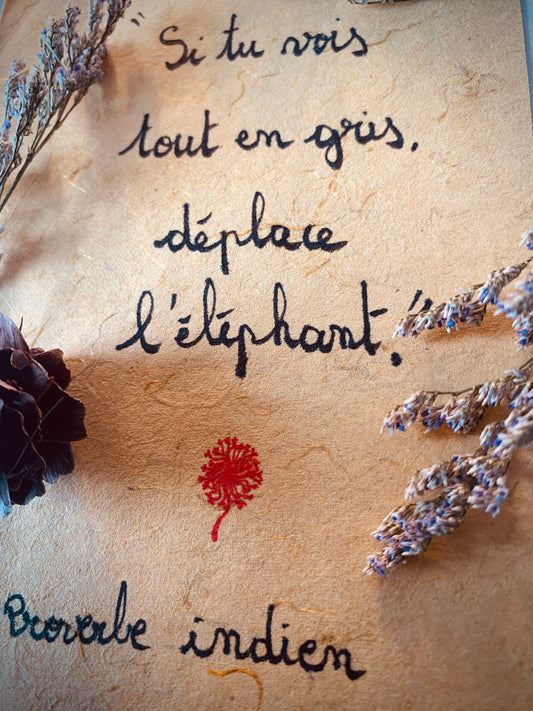 "Si tu vois
tout en gris,
déplace
l'éléphant."
Proverbe indien